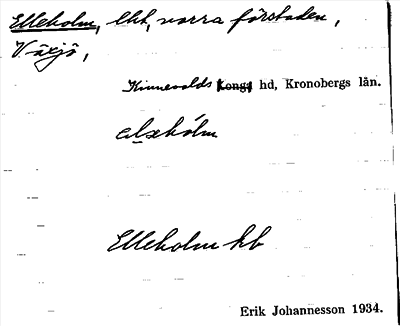 Elleholm, lht, norra förstaden,
Växjö,
Kinnevalds Konga hd, Kronobergs län.
elehólm
Elleholm hb
Erik Johannesson 1934.